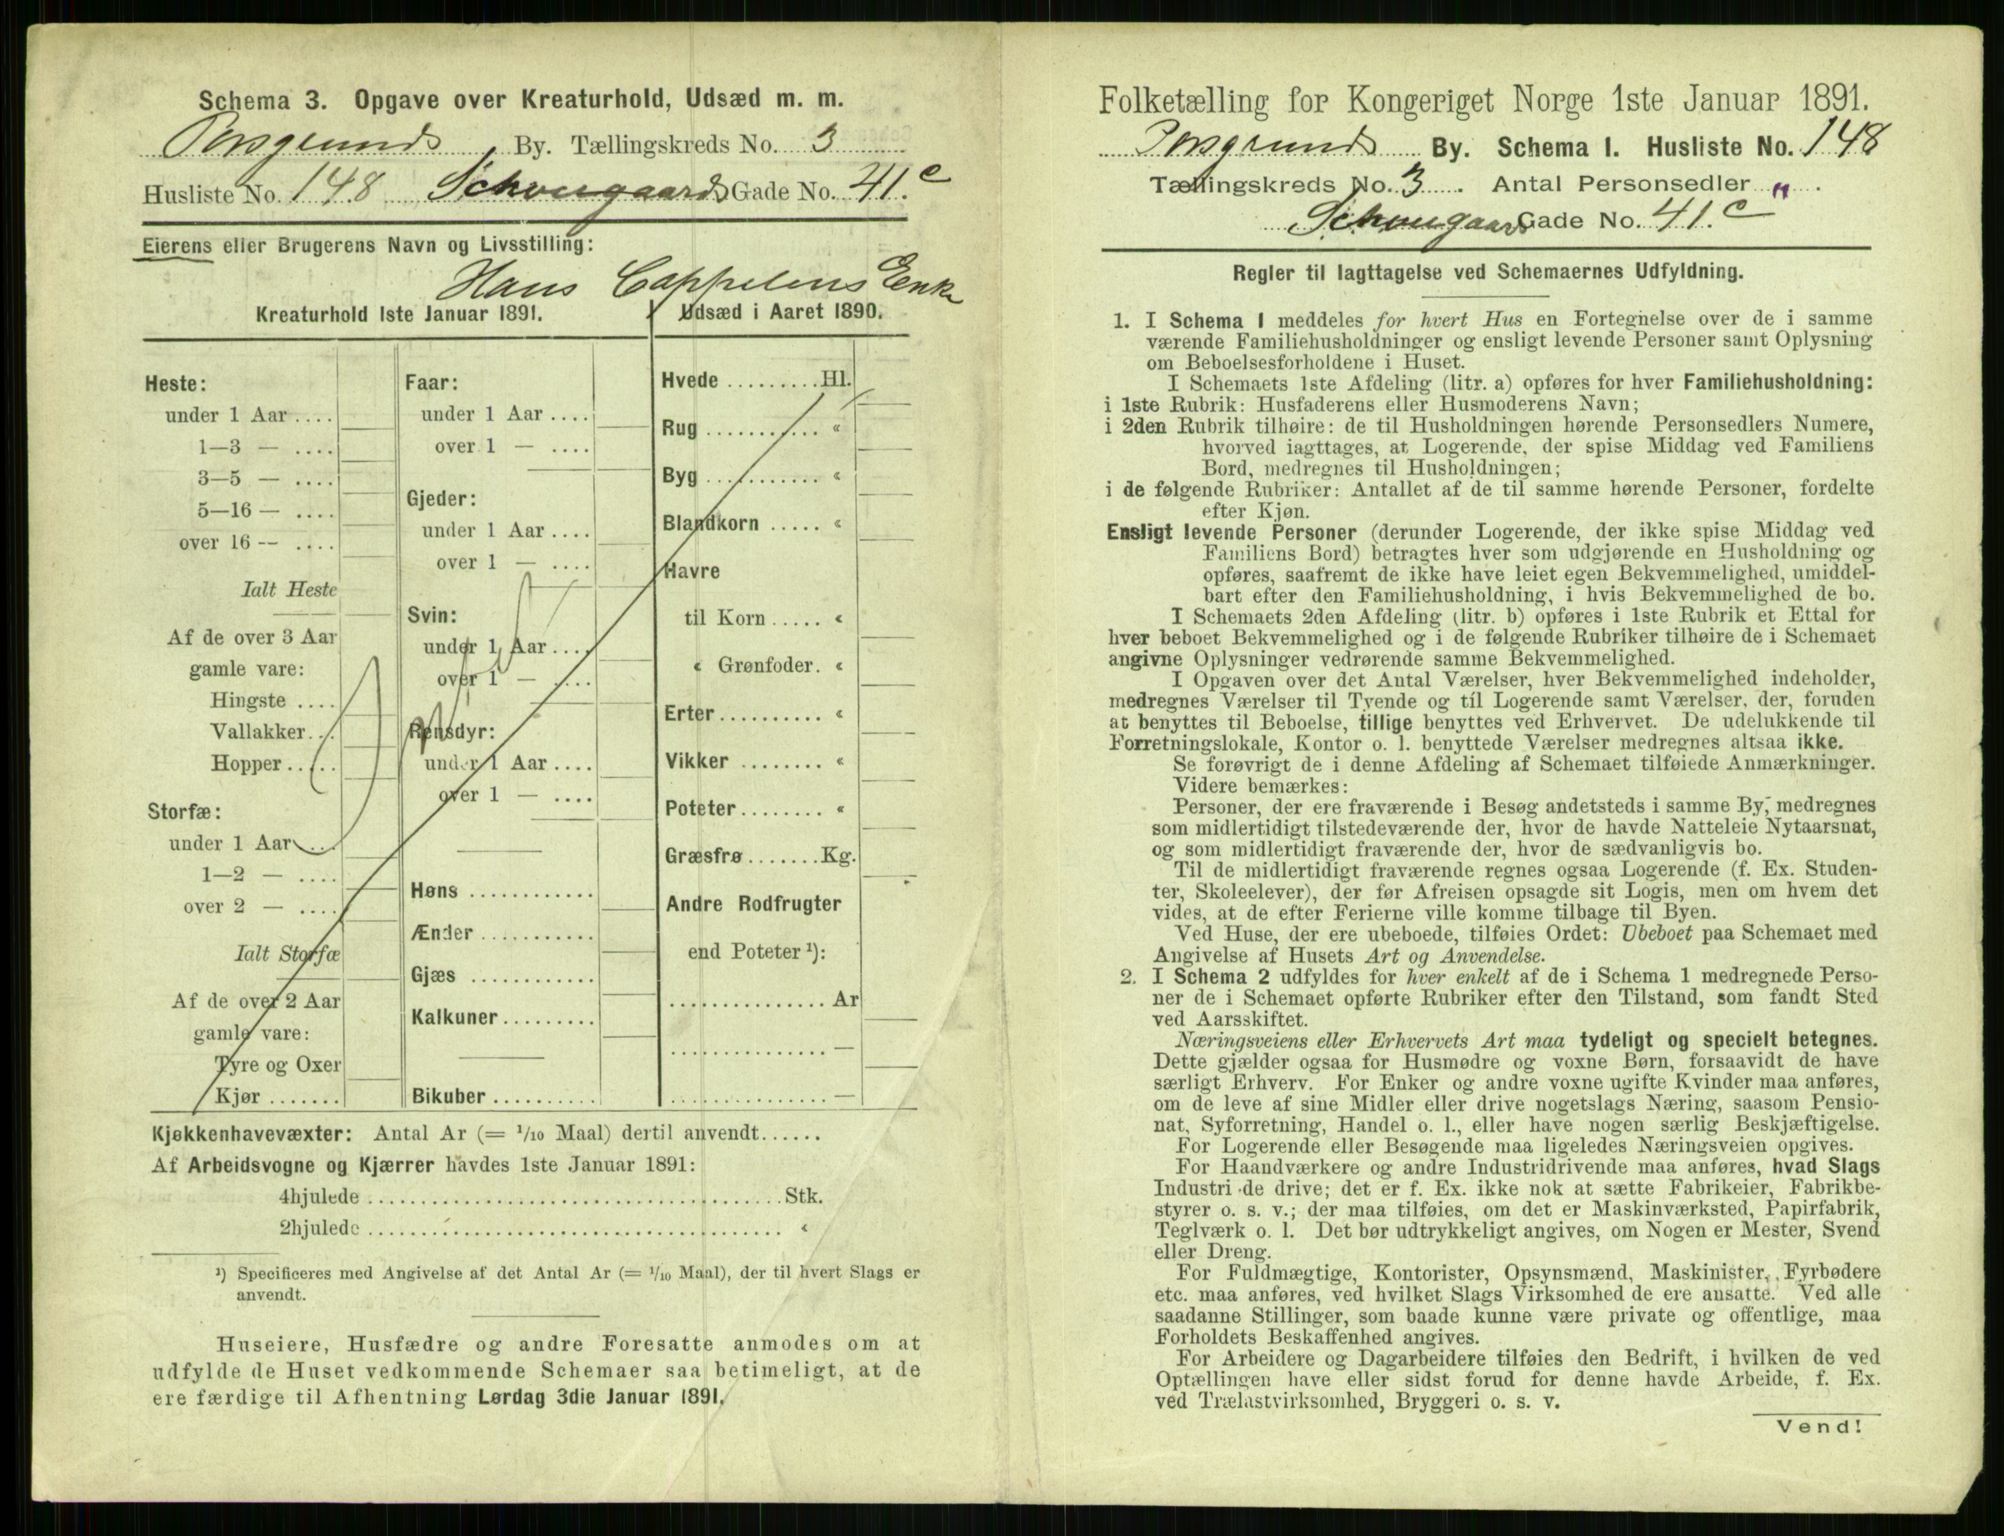 Schema 3. Opgave over Kreaturhold, Udsæd m. m.
Porsgrunds By. Tællingskreds No. 3
Husliste No. 148 Schougaards Gade No. 41c.
Eierens eller Brugerens Navn og Livsstilling:
Hans Cappelens Enke
Kreaturhold 1ste Januar 1891.
Heste:
under 1 Aar ....
1—3 — ....
3—5 — ....
5—16 — ....
over 16 — ....
Ialt Heste
Af de over 3 Aar
gamle vare:
Hingste ....
Vallakker....
Hopper .....
Storfæ:
under 1 Aar ....
1—2 — ....
over 2 — ....
Ialt Storfæ
Af de over 2 Aar
gamle vare:
Tyre og Oxer
Kjør .......
Faar:
under 1 Aar ....
over 1 — ....
Gjeder:
under 1 Aar ....
over 1 — ....
Svin:
under 1 Aar ....
over 1 — ....
Rensdyr:
under 1 Aar ....
over 1 — ....
Høns ............
Ænder...........
Gjæs ............
Kalkuner.........
Bikuber ..........
Udsæd i Aaret 1890.
Hvede .........Hl.
Rug ........... «
Byg ........... «
Blandkorn ..... «
Havre
til Korn ..... «
« Grønfoder. «
Erter.......... «
Vikker ........ «
Poteter........ «
Græsfrø.......Kg.
Andre Rodfrugter
end Poteter ¹):
............... Ar
............... —
............... —
Kjøkkenhavevæxter: Antal Ar (= 1/10 Maal) dertil anvendt......
Af Arbeidsvogne og Kjærrer havdes 1ste Januar 1891:
4hjulede ........................................ Stk.
2hjulede ........................................ «
¹) Specificeres med Angivelse af det Antal Ar (= 1/10 Maal), der til hvert Slags er
anvendt.
Huseiere, Husfædre og andre Foresatte anmodes om at
udfylde de Huset vedkommende Schemaer saa betimeligt, at de
ere færdige til Afhentning Lørdag 3die Januar 1891.
Folketælling for Kongeriget Norge 1ste Januar 1891.
Porsgrunds By. Schema I. Husliste No. 148
Tællingskreds No. 3. Antal Personsedler „ .
Schougaards Gade No. 41c.
Regler til Iagttagelse ved Schemaernes Udfyldning.
1. I Schema 1 meddeles for hvert Hus en Fortegnelse over de i samme
værende Familiehusholdninger og ensligt levende Personer samt Oplysning
om Beboelsesforholdene i Huset.
I Schemaets 1ste Afdeling (litr. a) opføres for hver Familiehusholdning:
i 1ste Rubrik: Husfaderens eller Husmoderens Navn;
i 2den Rubrik tilhøire: de til Husholdningen hørende Personsedlers Numere,
hvorved iagttages, at Logerende, der spise Middag ved Familiens
Bord, medregnes til Husholdningen;
i de følgende Rubriker: Antallet af de til samme hørende Personer, fordelte
efter Kjøn.
Ensligt levende Personer (derunder Logerende, der ikke spise Middag ved
Familiens Bord) betragtes hver som udgjørende en Husholdning og
opføres, saafremt de ikke have leiet egen Bekvemmelighed, umiddel-
bart efter den Familiehusholdning, i hvis Bekvemmelighed de bo.
I Schemaets 2den Afdeling (litr. b) opføres i 1ste Rubrik et Ettal for
hver beboet Bekvemmelighed og i de følgende Rubriker tilhøire de i Schemaet
angivne Oplysninger vedrørende samme Bekvemmelighed.
I Opgaven over det Antal Værelser, hver Bekvemmelighed indeholder,
medregnes Værelser til Tyende og til Logerende samt Værelser, der, foruden
at benyttes til Beboelse, tillige benyttes ved Erhvervet. De udelukkende til
Forretningslokale, Kontor o. l. benyttede Værelser medregnes altsaa ikke.
Se forøvrigt de i denne Afdeling af Schemaet tilføiede Anmærkninger.
Videre bemærkes:
Personer, der ere fraværende i Besøg andetsteds i samme By, medregnes
som midlertidigt tilstedeværende der, hvor de havde Natteleie Nytaarsnat,
og som midlertidigt fraværende der, hvor de sædvanligvis bo.
Til de midlertidigt fraværende regnes ogsaa Logerende (f. Ex. Studen-
ter, Skoleelever), der før Afreisen opsagde sit Logis, men om hvem det
vides, at de efter Ferierne ville komme tilbage til Byen.
Ved Huse, der ere ubeboede, tilføies Ordet: Ubeboet paa Schemaet med
Angivelse af Husets Art og Anvendelse.
2. I Schema 2 udfyldes for hver enkelt af de i Schema 1 medregnede Perso-
ner de i Schemaet opførte Rubriker efter den Tilstand, som fandt Sted
ved Aarsskiftet.
Næringsveiens eller Erhvervets Art maa tydeligt og specielt betegnes.
Dette gjælder ogsaa for Husmødre og voxne Børn, forsaavidt de have
særligt Erhverv. For Enker og andre voxne ugifte Kvinder maa anføres,
om de leve af sine Midler eller drive nogetslags Næring, saasom Pensio-
nat, Syforretning, Handel o. l., eller have nogen særlig Beskjæftigelse.
For Logerende eller Besøgende maa ligeledes Næringsveien opgives.
For Haandværkere og andre Industridrivende maa anføres, hvad Slags
Industri de drive; det er f. Ex. ikke nok at sætte Fabrikeier, Fabrikbe-
styrer o. s. v.; der maa tilføies, om det er Maskinværksted, Papirfabrik,
Teglværk o. l. Det bør udtrykkeligt angives, om Nogen er Mester, Svend
eller Dreng.
For Fuldmægtige, Kontorister, Opsynsmænd, Maskinister, Fyrbødere
etc. maa anføres, ved hvilket Slags Virksomhed de ere ansatte. Ved alle
saadanne Stillinger, som baade kunne være private og offentlige, maa
Forholdets Beskaffenhed angives.
For Arbeidere og Dagarbeidere tilføies den Bedrift, i hvilken de ved
Optællingen have eller sidst forud for denne havde Arbeide, f. Ex.
ved Trælastvirksomhed, Bryggeri o. s. v.
Vend!